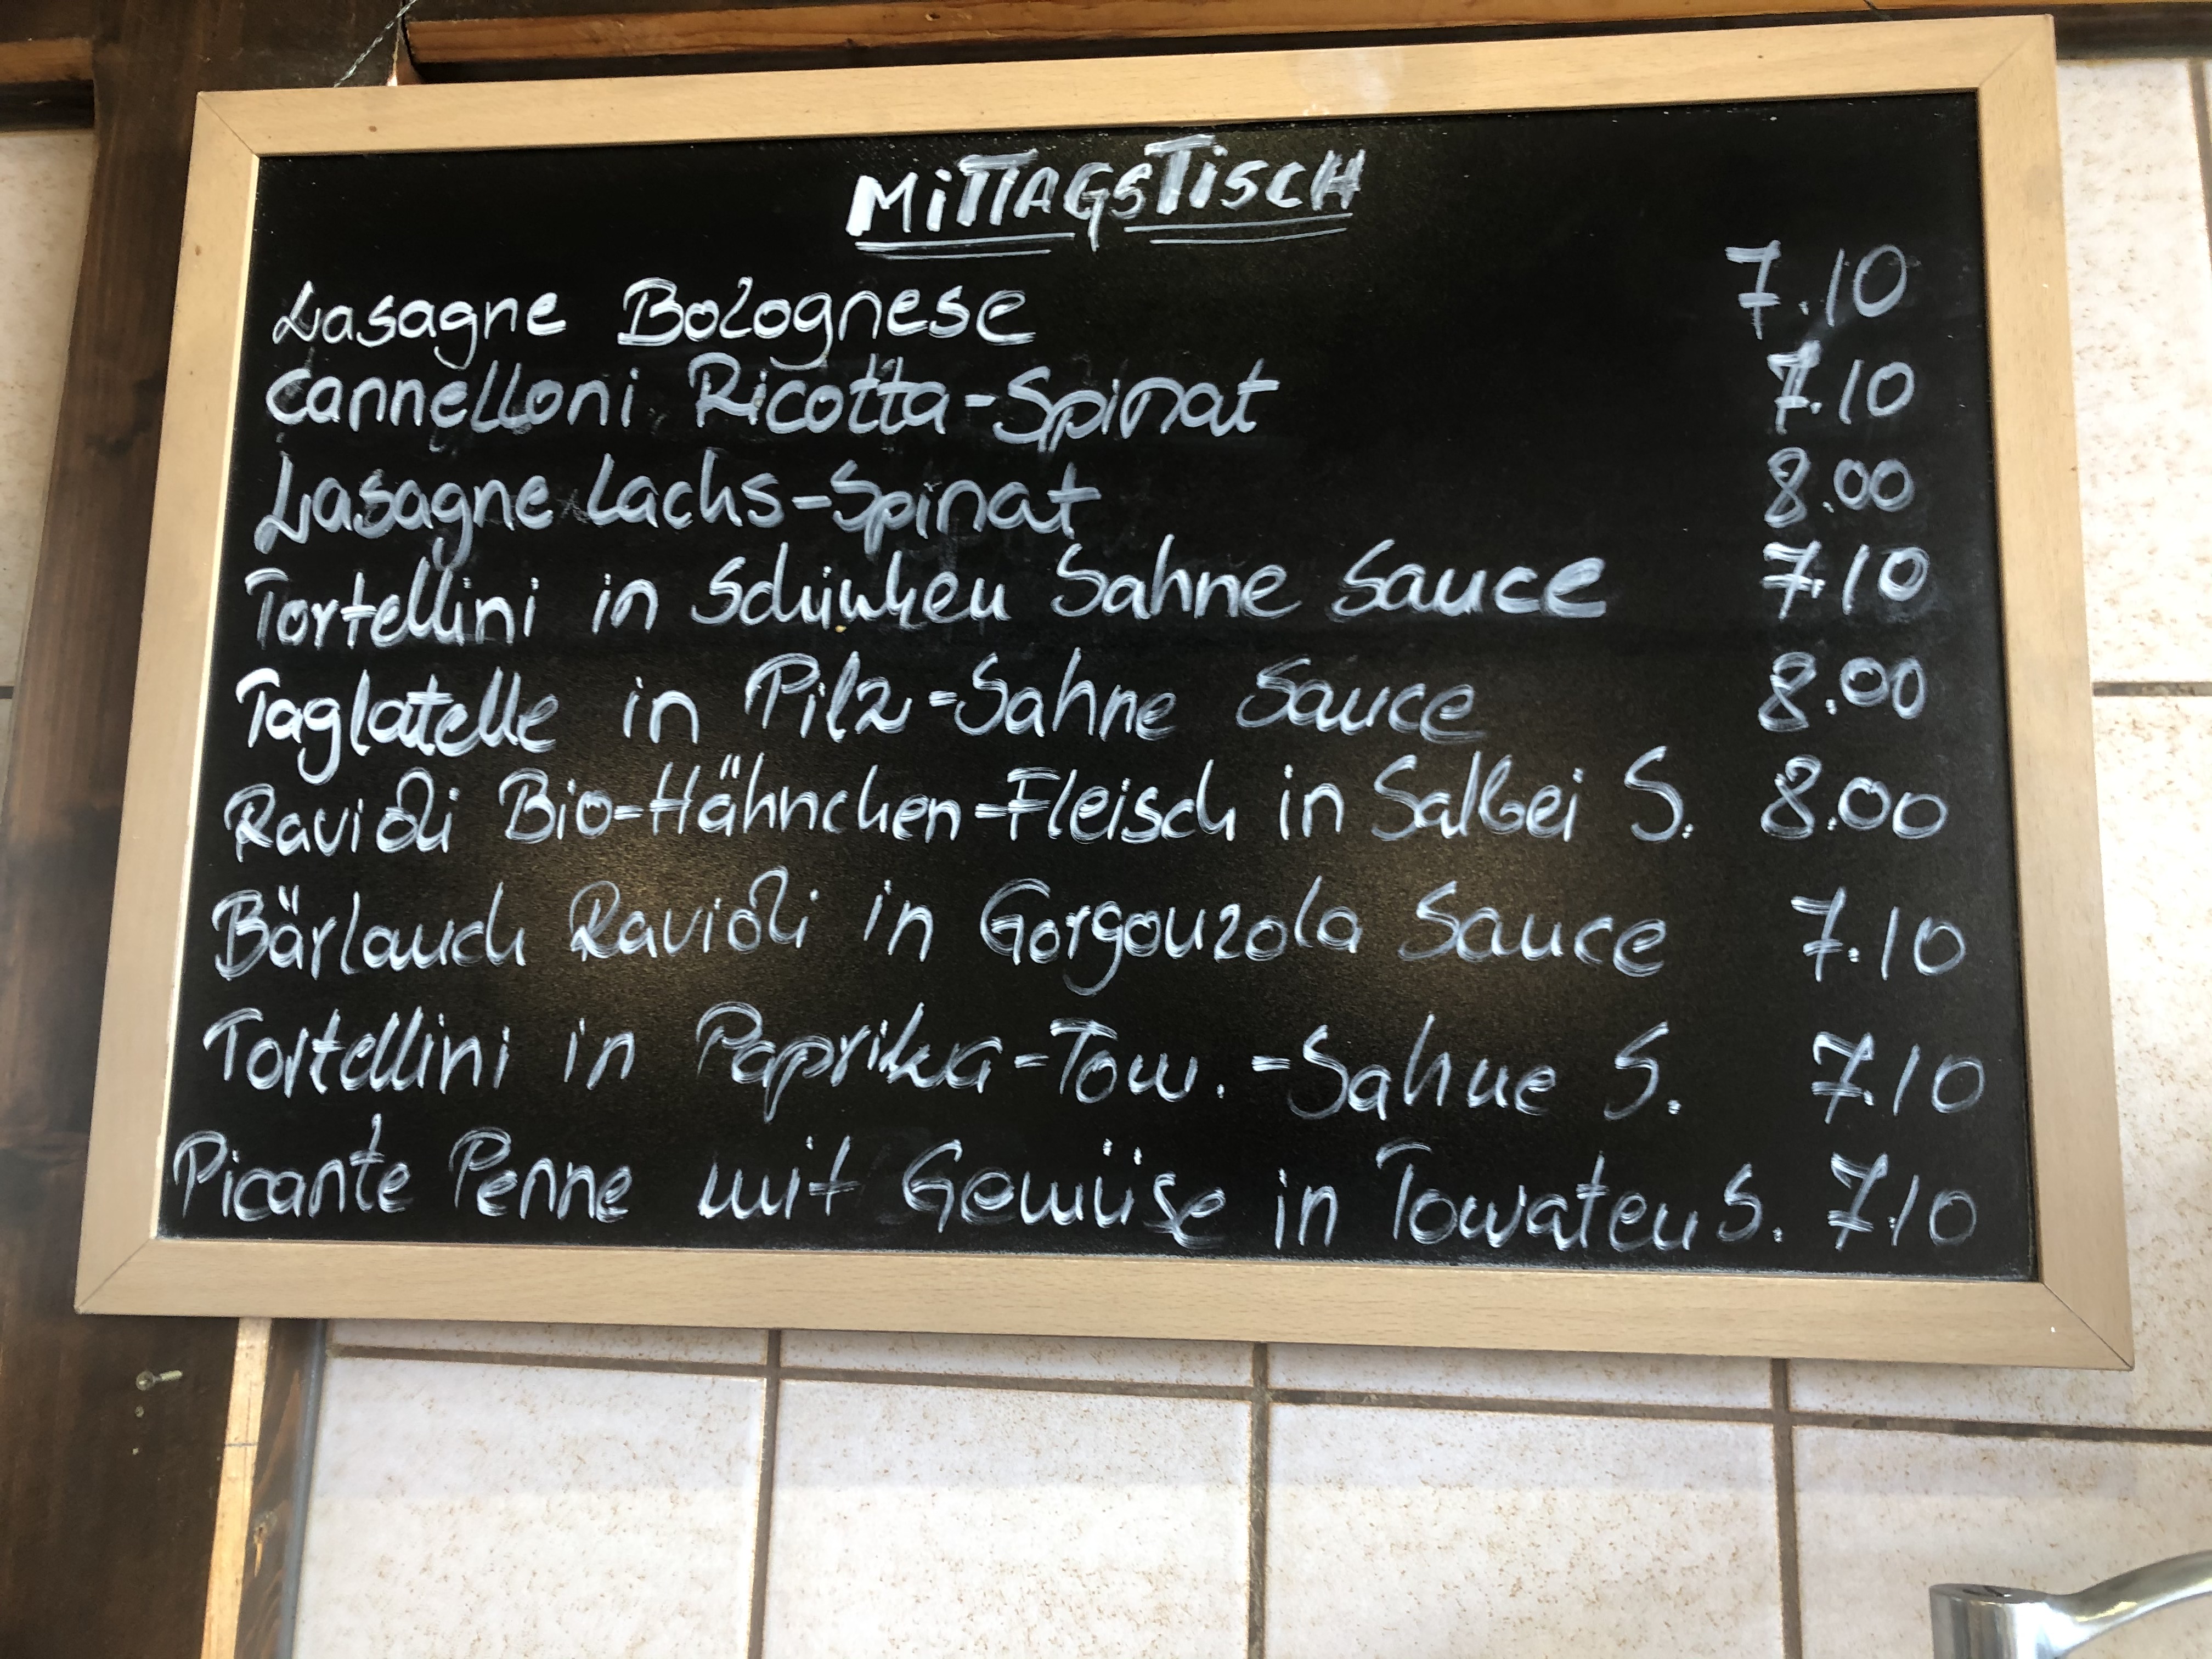 MiTTAGSTiSCH
Lasagne Bolognese 7.10
Cannelloni Ricotta-Spinat 7.10
Lasagne Lachs-Spinat 8.00
Tortellini in Schinken Sahne Sauce 7.10
Taglatelle in Pilz-Sahne Sauce 8.00
Ravioli Bio-Hähnchen-Fleisch in Salbei S. 8.00
Bärlauch Ravioli in Gorgonzola Sauce 7.10
Tortellini in Paprika-Tom.-Sahne S. 7.10
Picante Penne mit Gemüse in Tomaten S. 7.10